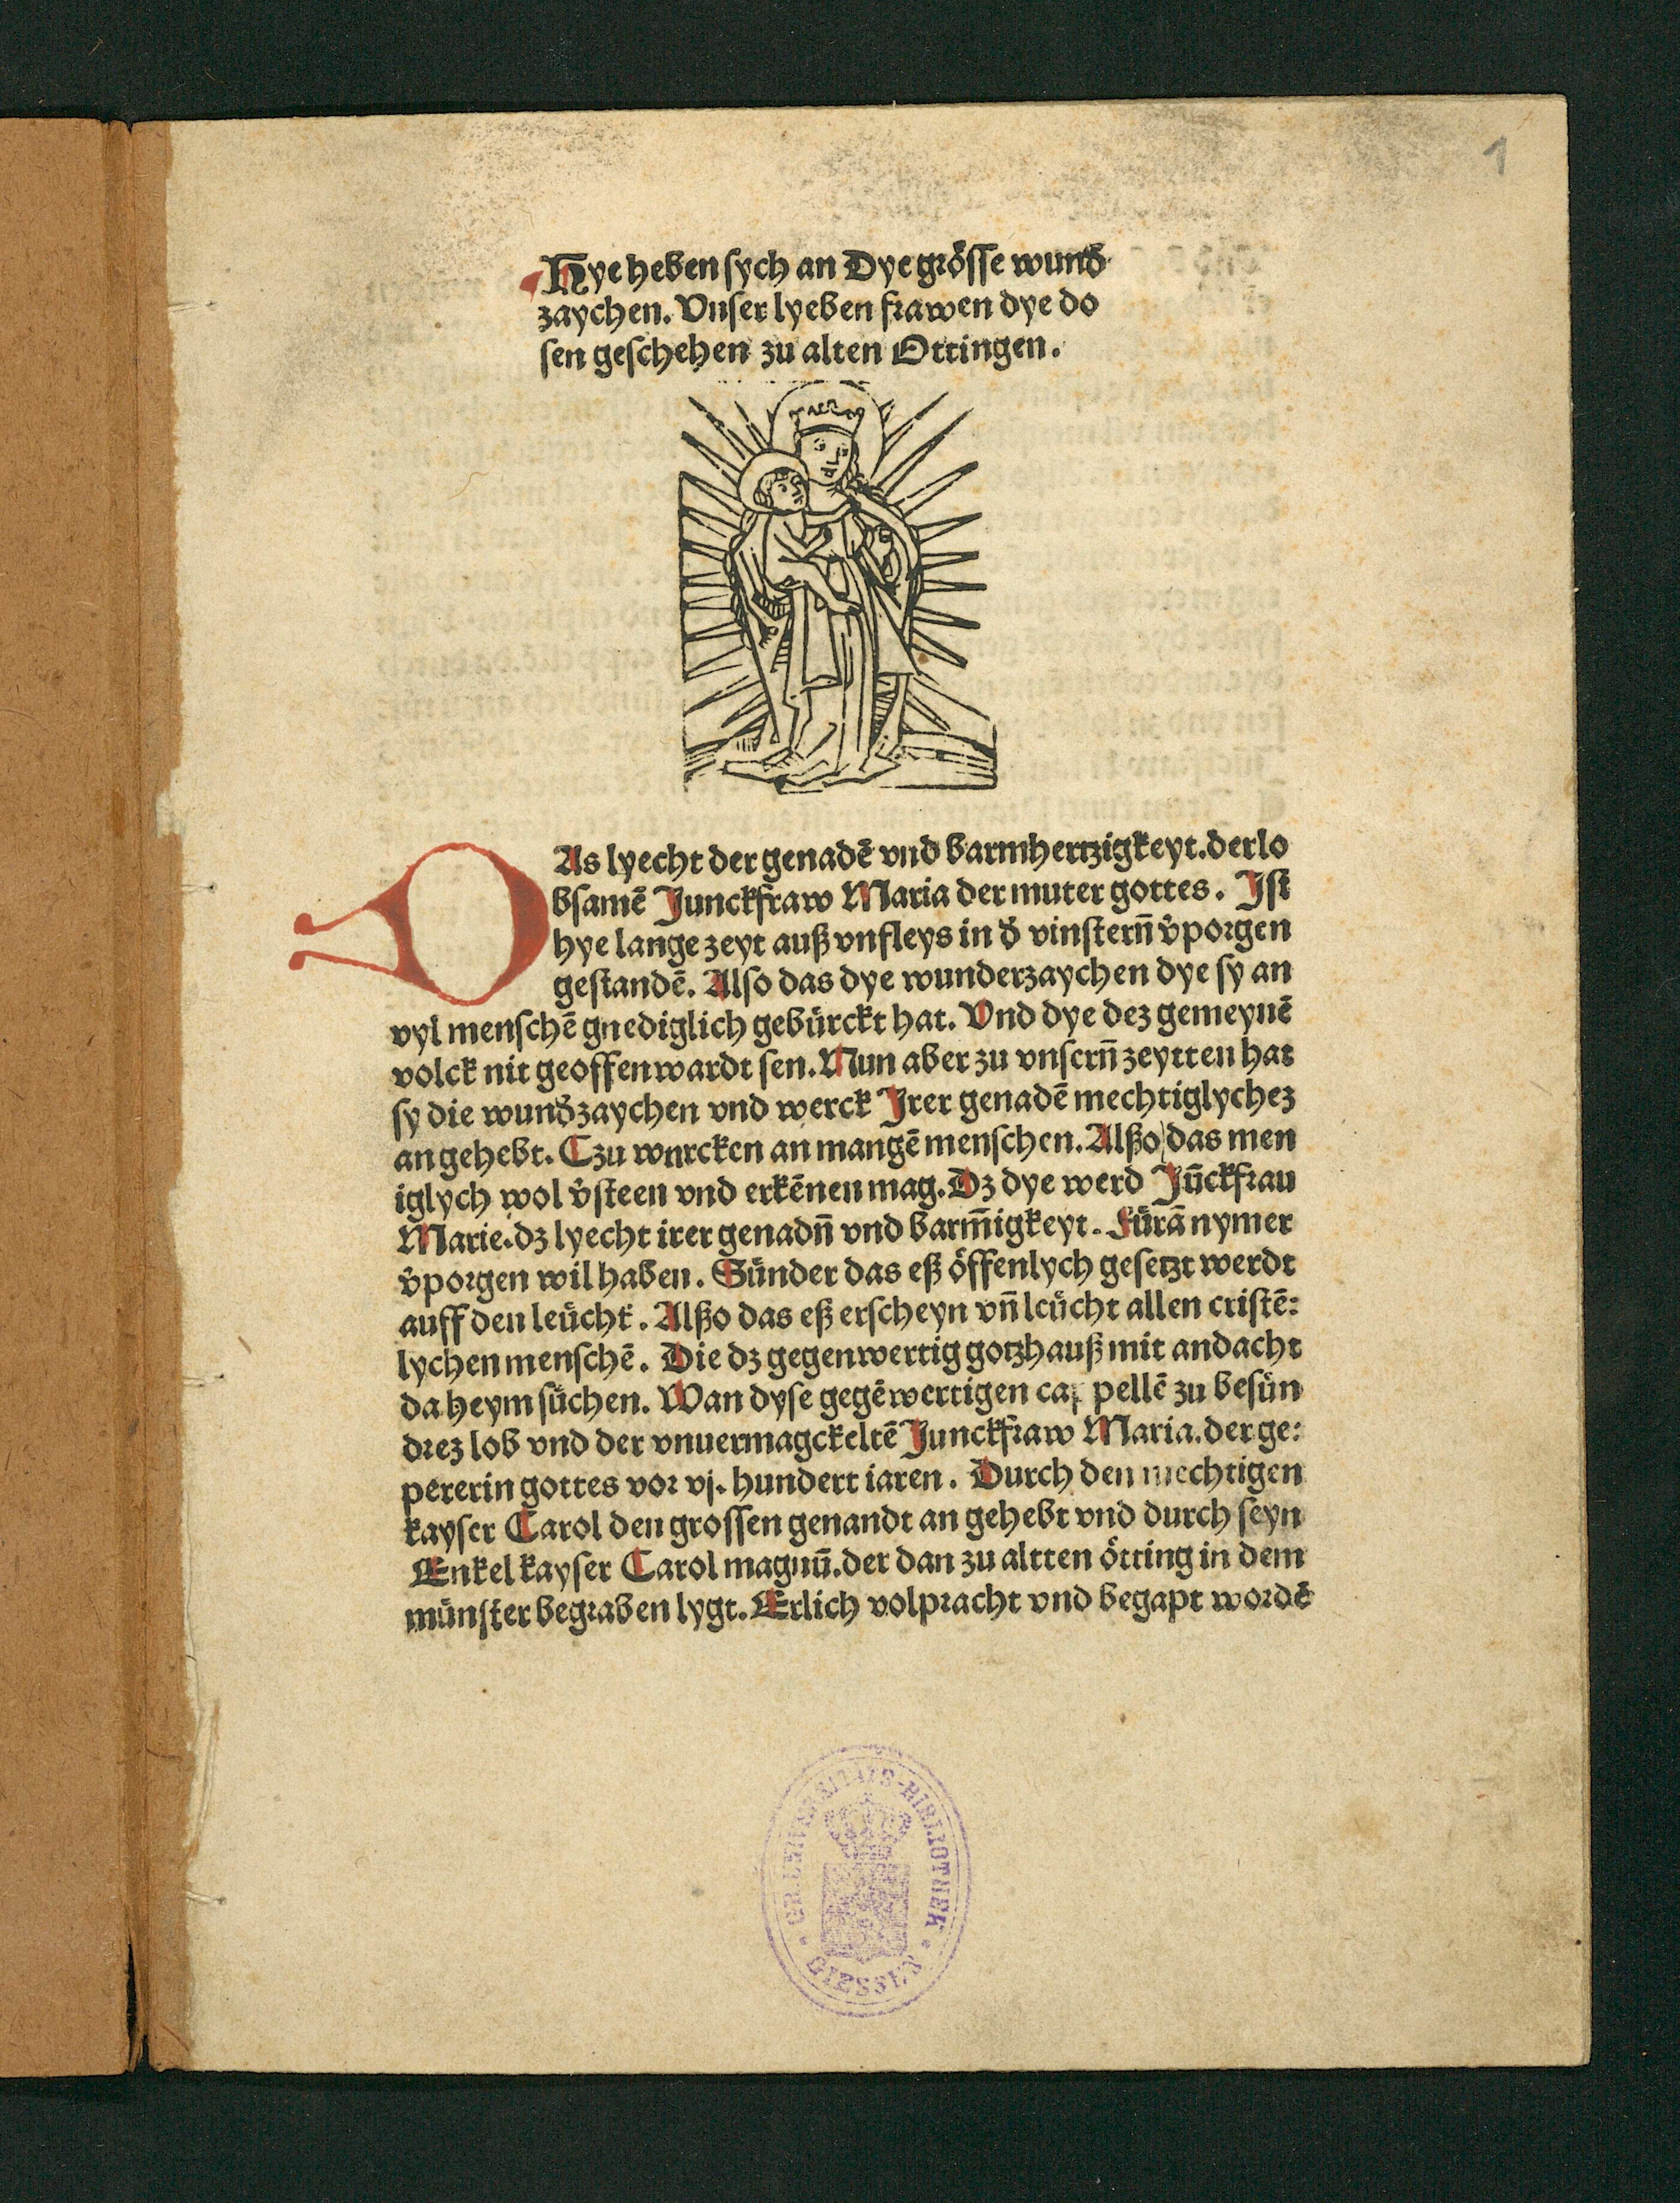 1
Hye heben sych an Dye grösse wund̾
zaychen. Vnser lyeben frawen dye do
sen geschehen zu alten Ottingen.
DAs lyecht der genadē vnd barmhertzigkeyt. der lo
bsamē Junckfraw Maria der muter gottes. Jst
hye lange zeyt auß vnfleys in d̾ vinstern̄ v̾porgen
gestandē. Also das dye wunderzaychen dye sy an
vyl menschē gnediglich gebürckt hat. Vnd dye dez gemeynē
volck nit geoffenwardt sen. Nun aber zu vnsern̄ zeytten hat
sy die wund̾zaychen vnd werck Jrer genadē mechtiglychez
an gehebt. Czu wurcken an mangē menschen. Alßo das men
iglych wol v̾steen vnd erkēnen mag. Dz dye werd Jūckfrau
Marie. dz lyecht irer genadn̄ vnd barm̄igkeyt. Fürā nymer
v̾porgen wil haben. Sünder das eß öffenlych gesetzt werdt
auff den leücht̾. Alßo das eß erscheyn vn̄ leücht allen cristē:
lychen menschē. Die dz gegenwertig gotzhauß mit andacht
da heym süchen. Wan dyse gegēwertigen cappellē zu besün
drez lob vnd der vnuermagckeltē Junckfraw Maria. der ge:
pererin gottes vor vj. hundert iaren. Durch den mechtigen
kayser Carol den grossen genandt an gehebt vnd durch seyn
Enkel kayser Carol magnū. der dan zu altten ötting in dem
münster begraben lygt. Erlich volpracht vnd begapt wordē
GR. UNIVERSITÄTS-BIBLIOTHEK
GIESSEN